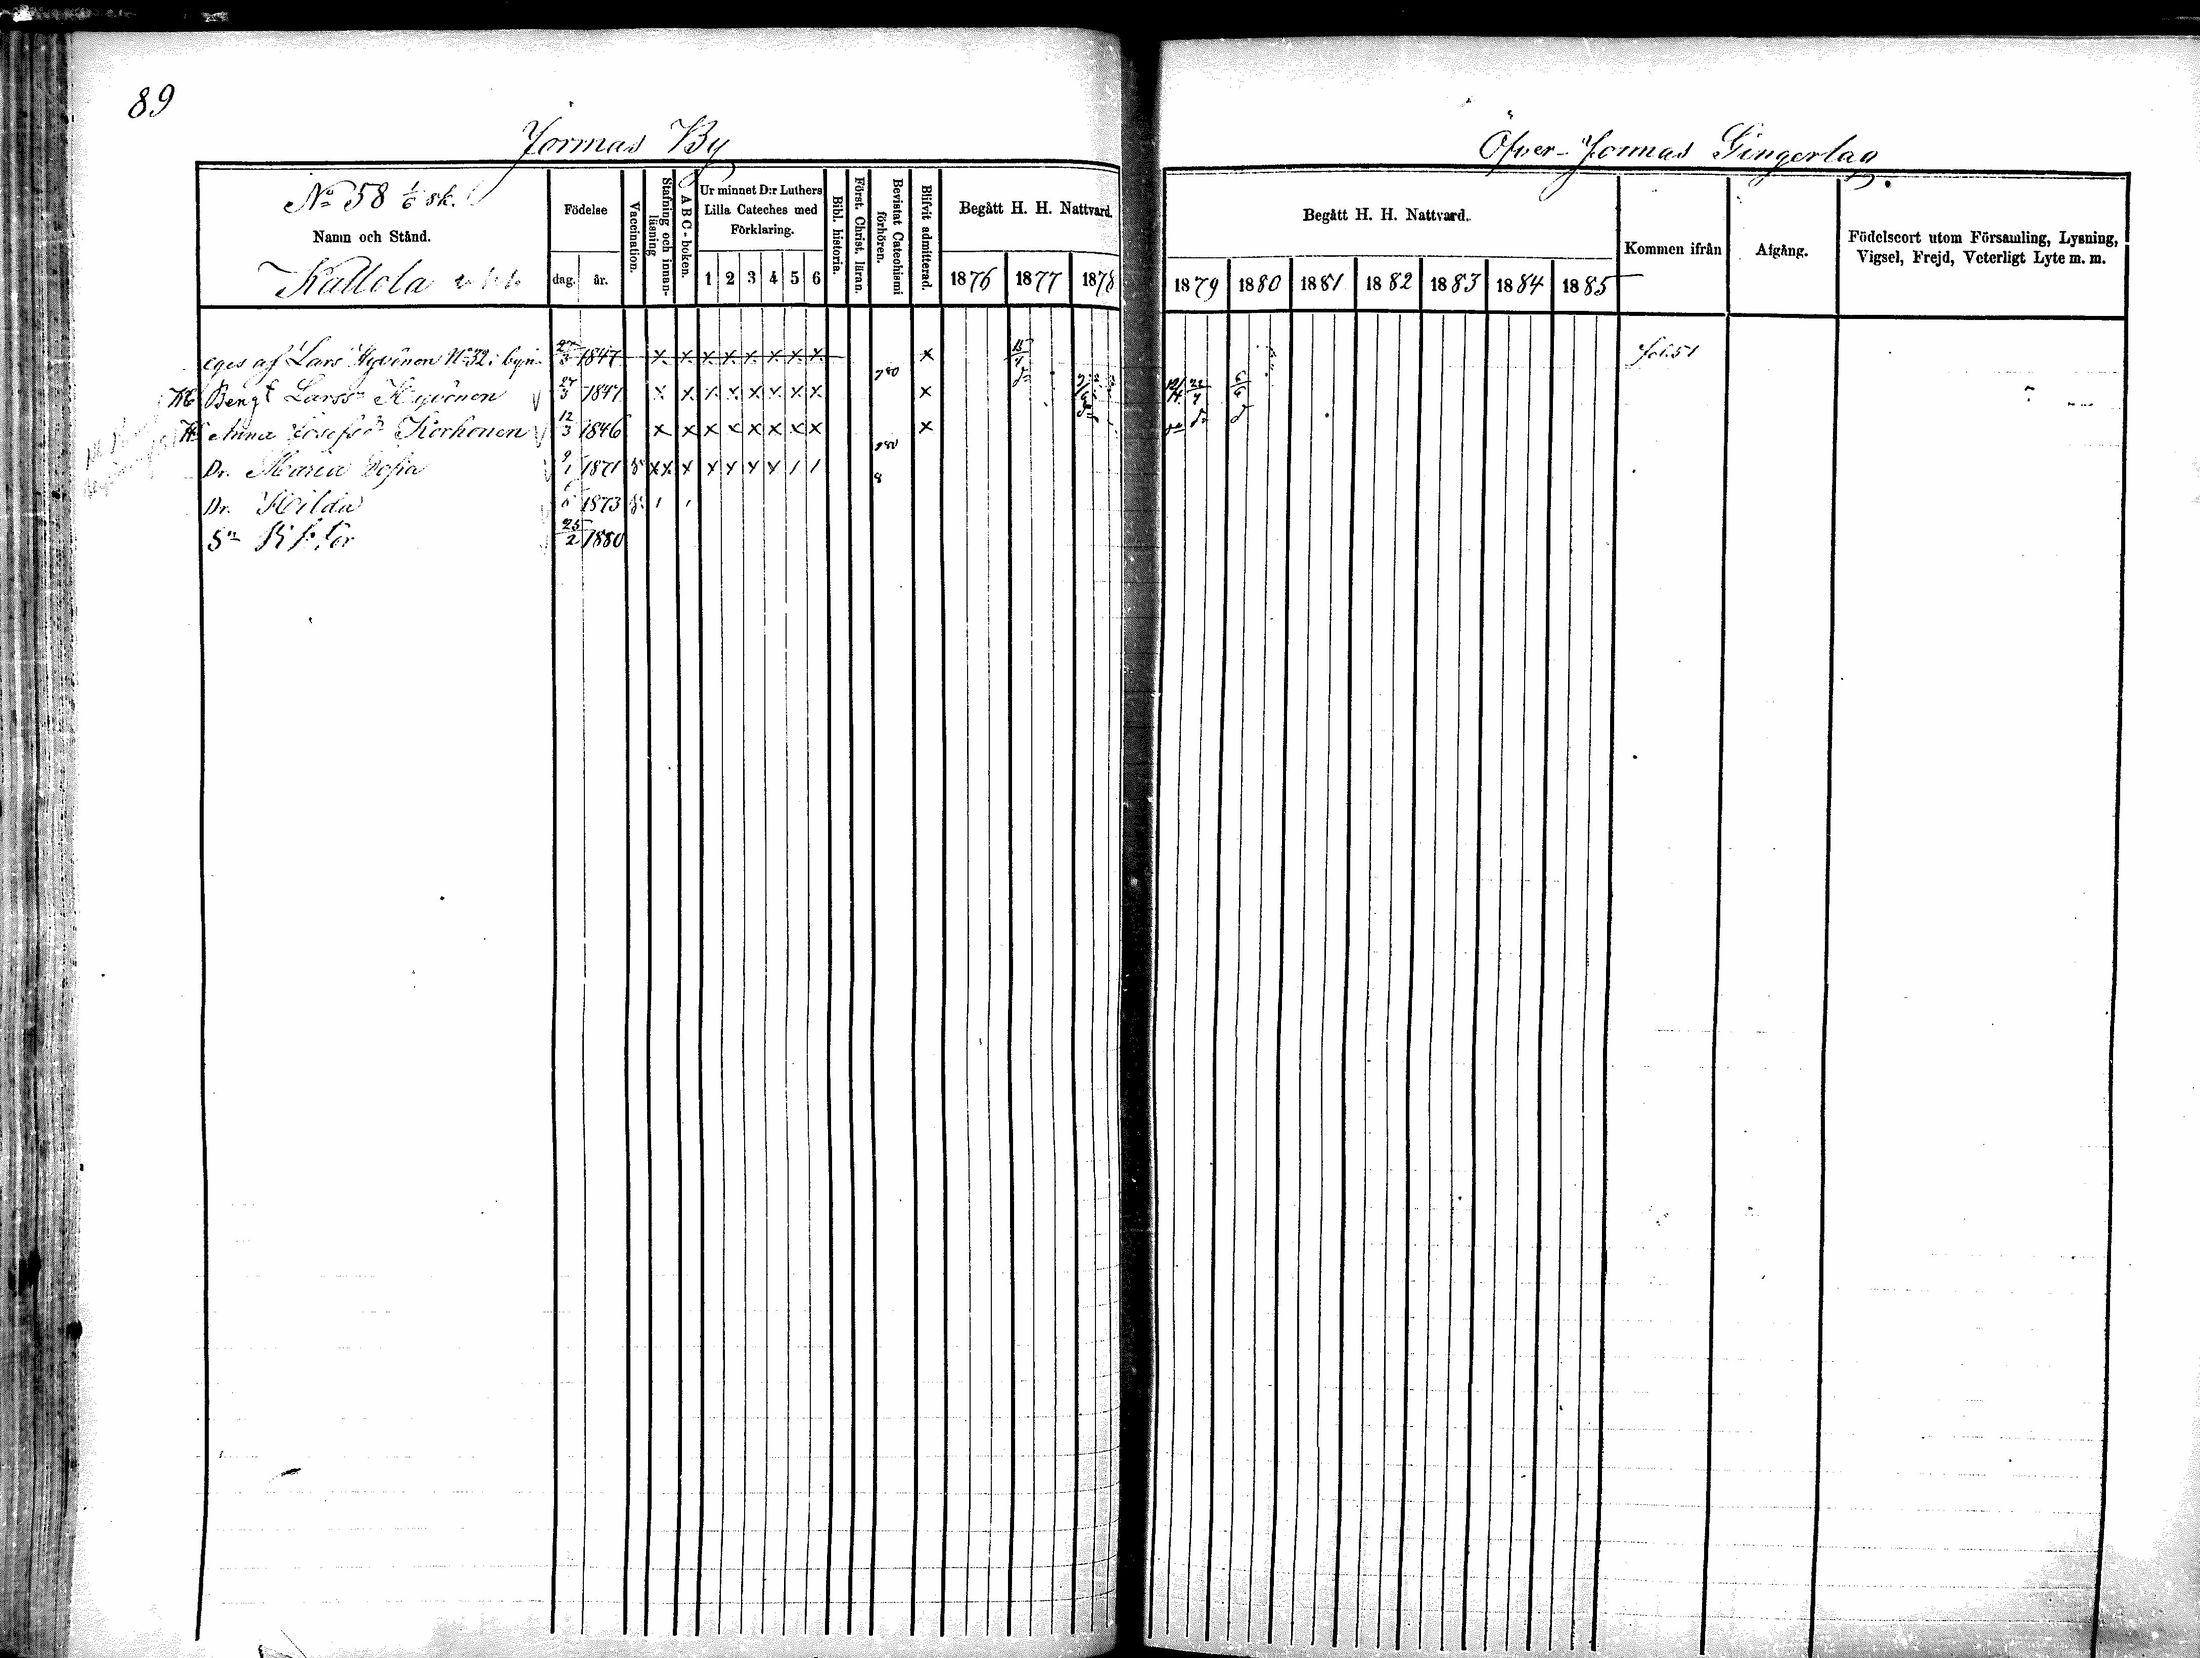 89
Jormas By
Öfver-Jormas Gingerlag.
No 58 1/6 sk.
Namn och Stånd.
Kallola
Födelse
dag. år.
Vaccination.
Stafning och innanläsning
A B C-boken.
Ur minnet D:r Luthers
Lilla Cateches med
Förklaring.
1 2 3 4 5 6
Bibl. historia.
Först. Christ. läran.
Bevistat Catechismi förhören.
Blifvit admitterad.
Begått H. H. Nattvard.
1876 1877 1878
Begått H. H. Nattvard.
1879 1880 1881 1882 1883 1884 1885
Kommen ifrån
Afgång.
Födelseort utom Församling, Lysning,
Vigsel, Frejd, Veterligt Lyte m. m.
eges af Lars Hyvönen No 32 i byn 27/3 1847 x x x x x x x x x 15/4 fol. 51
Bengt Larss. Hyvönen 27/3 1847 x x x x x x x x 780 x
Anna Josefsd. Korhonen 12/3 1846 x x x x x x x x x
Dr. Maria Sofia 9/1 1871 x x x x x x x 1 1 8
Dr. Hilda 1873 1 1
Sn 25/2 1880